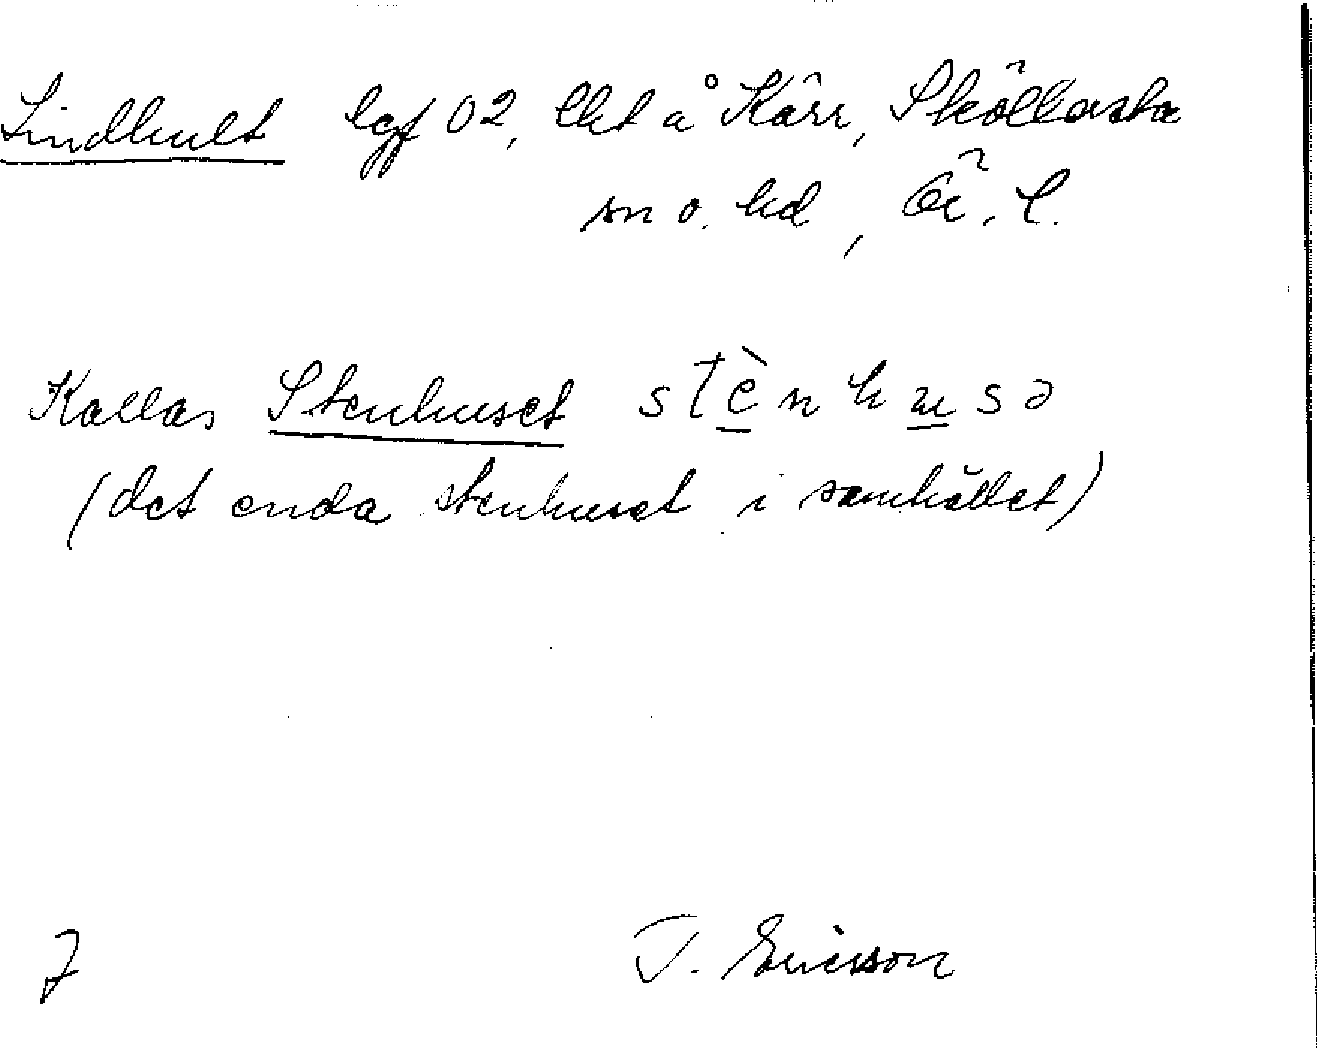 Lindhult lgf 02, lht å Kärr, Sköllersta
sn o. hd, Ör. l.
Kallas Stenhuset stènhusə
(det enda stenhuset i samhället)
7
T. Ericson